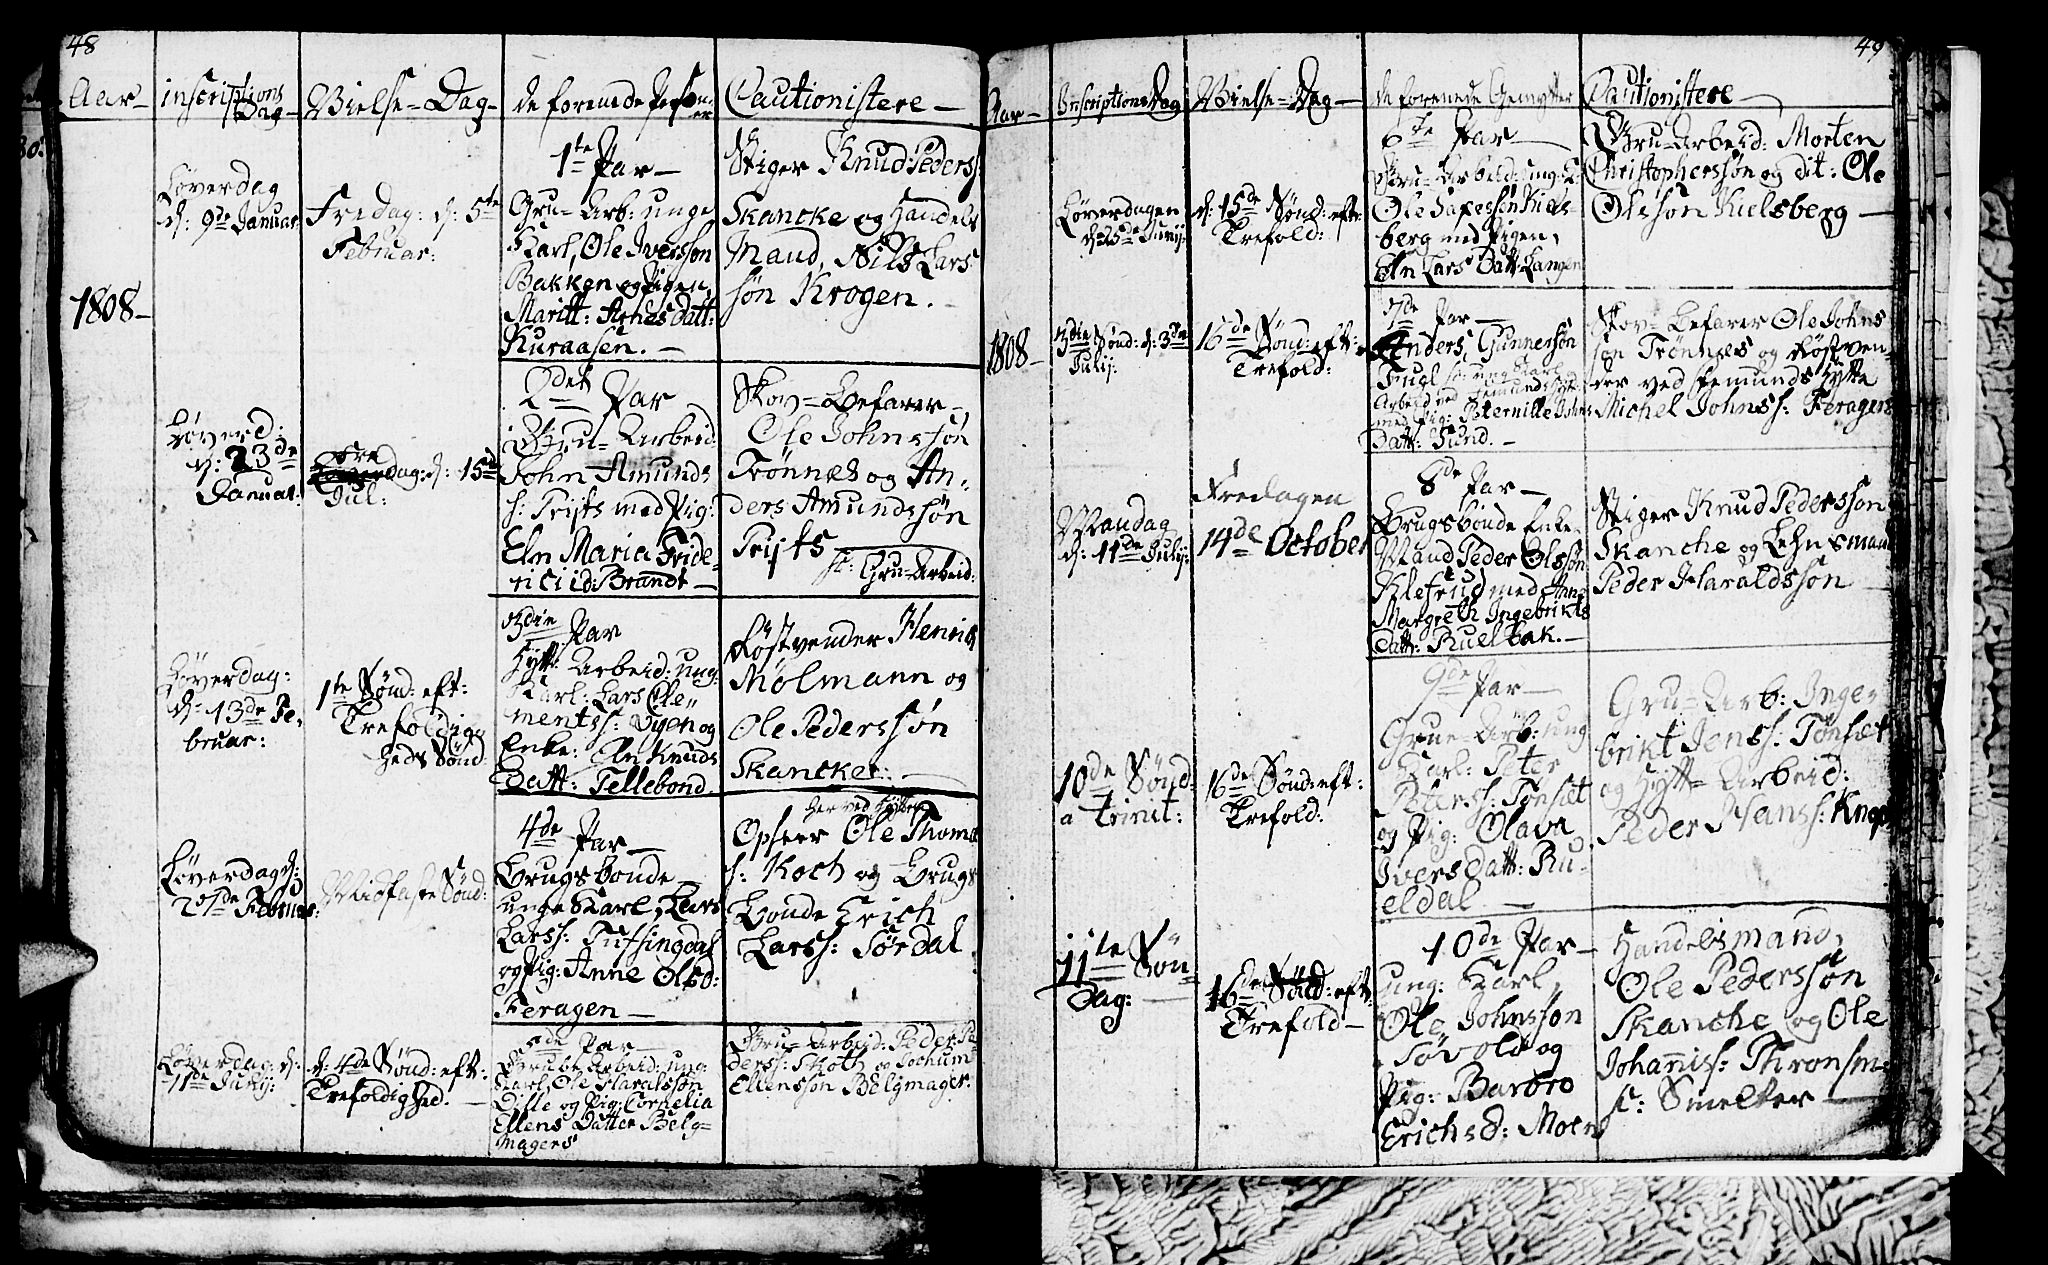 48
Aar
inscriptions Dag
Vielse=Dag
de forenede Person-er
Cautionistere
1808
Løverdag
d: 9de Januar:
Fredag: d: 5te
Februar:
1te Par
Gru=Arb: unge
Karl, Ole Iversøn
Bakken og Pigen
Maritt: Arnes Datt:
Kuraasen.
Stiger Knud Peders:
Skancke og Handels
Mand, Nils Lars
søn Krogen.
Løverd:
d: 23de
Januar
Fredag: d: 15de
Jul:
2det Par
Gru=Arbeid:
John Amunds
s: Prijts med Pig:
Eln Maria Fride
rici id: Brandt
Skov=Befarer
Ole Johnssøn
Trønnes og An-
ders Amundssøn
Prijts
Gru=Arbeid:
Løverdag:
d: 13de Fe-
bruar:
1te Sønd: eft:
Trefoldig-
heds Sønd:
3die Par
Hytt: Arbeid: ung:
Karl: Lars Cle-
mentss: og
Enke: Eln Knuds
Datt: Tellebond
Røstvender Henrich
Mølmann og
Ole Pederssøn
Skancke:
Løverdag d:
27de Februar:
Midfaste Sønd:
4de Par
Brugsbonde
unge Karl, Lars
Larss: Tufsingdal
og Pig: Anne Olsd:
Feragen
her ved Hytten
Opseer Ole Thoma
s: Koch og Brugs
Bonde Erich
Larss: Sørdal
Løverdag: d:
11de Junij:
d: 4de Sønd: eft:
Trefoldighed.
5de Par
Grube Arbeid: ung:
Karl, Ole Haralssøn
Dille og Pig: Cornelia
Ellens Datter Belg-
magers
Gru=Arbeid: Peder Pe-
derss: Skoth og Jochum
Ellenssøn Belgmager.
49
Aar
Inscriptions Dag
Vielse=Dag
de forenede Gemytter
Cautionistere
1808
Løverdagen
d: 25de Junij:
d: 15de Sønd: eft:
Trefold:
6te Par
Gru=Arbeid: ung: K:
Ole Kiels-
berg med Pigen,
Eln Lars Datt: Langen
Gru=Arbeid: Morten
Christopherssøn og dit: Ole
Olesøn Kielsberg
3die Sønd: d: 3die
Julij:
16de Sønd: eft:
Trefold:
7de Par
Anders Gunnersøn
Fugl s: ung Karl
Arbeid ved Femundshytte
med Pig: Pternille Johns
Datt: Sund.
Skov=Befarer Ole Johns
søn Trønnes og Røstven-
der ved Femunds Hytte
Michel Johnss: Feragen
Mandag
d: 11de Julij:
Fredagen
14de October
8de Par
Brugsbonde Enke-
Mand Peder Olssøn
Kletrud med Anne
Margreth Ingebrikts
Datt: Ruelbak.
Stiger Knud Pederssøn
Skanche og Lehnsmand
Peder Haraldssøn
10de Sønd:
a Trinit:
16de Sønd: eft:
Trefold:
9de Par
Grue=Arb: ung
Karl: Peter
Peterss: Tønset
og Pig: Olava
Ivers Datt: Ru-
eldal
Gru=Arb: Inge-
brikt Jenss: Tønset
og Hytt=Arbeid:
Peder Hanss: Knop
11te Søn-
Dag:
16de Sønd: eft:
Trefold
10de Par
ung: Karl,
Ole Johnssøn
Søvold og
Pig: Barbro
Erichsd: Moen
Handelsmand,
Ole Pederssøn
Skanche og Ole
Johannis: Thronsm-
s: Smelter